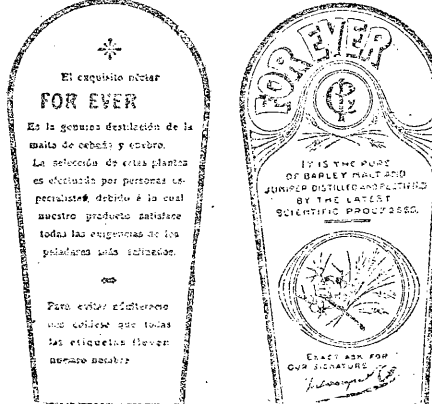 El exquisito néctar
FOR EVER
Es la genuina destilación de la
malta de cebada y enebro.
La selección de estas plantas
es efectuada por personas es-
pecialistas, debido á la cual
nuestro producto satisface
todas las exigencias de los
paladares más refinados.
Para evitar
que todas
las etiquetas lleven
nuestro nombre
FOR EVER
IT IS THE PURE
OF BARLEY MALT AND
JUNIPER DISTILLED AND RECTIFIED
BY THE LATEST
SCIENTIFIC PROCESSES.
EXACT ASK FOR
OUR SIGNATURE